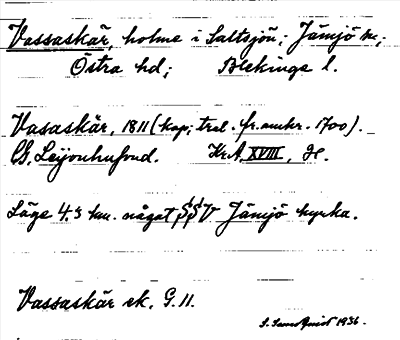 Vassaskär, holme i Saltsjön; Jämjö sn;
Östra hd; Blekinge l.
Vasaskär, 1811 (kop; trol. fr. omkr. 1700).
CG. Leijonhufvud. Kr.A. XVIII, H.
Läge 4.3 km. något SSV Jämjö kyrka.
Vassaskär ek. G. 11.
S. 1936.